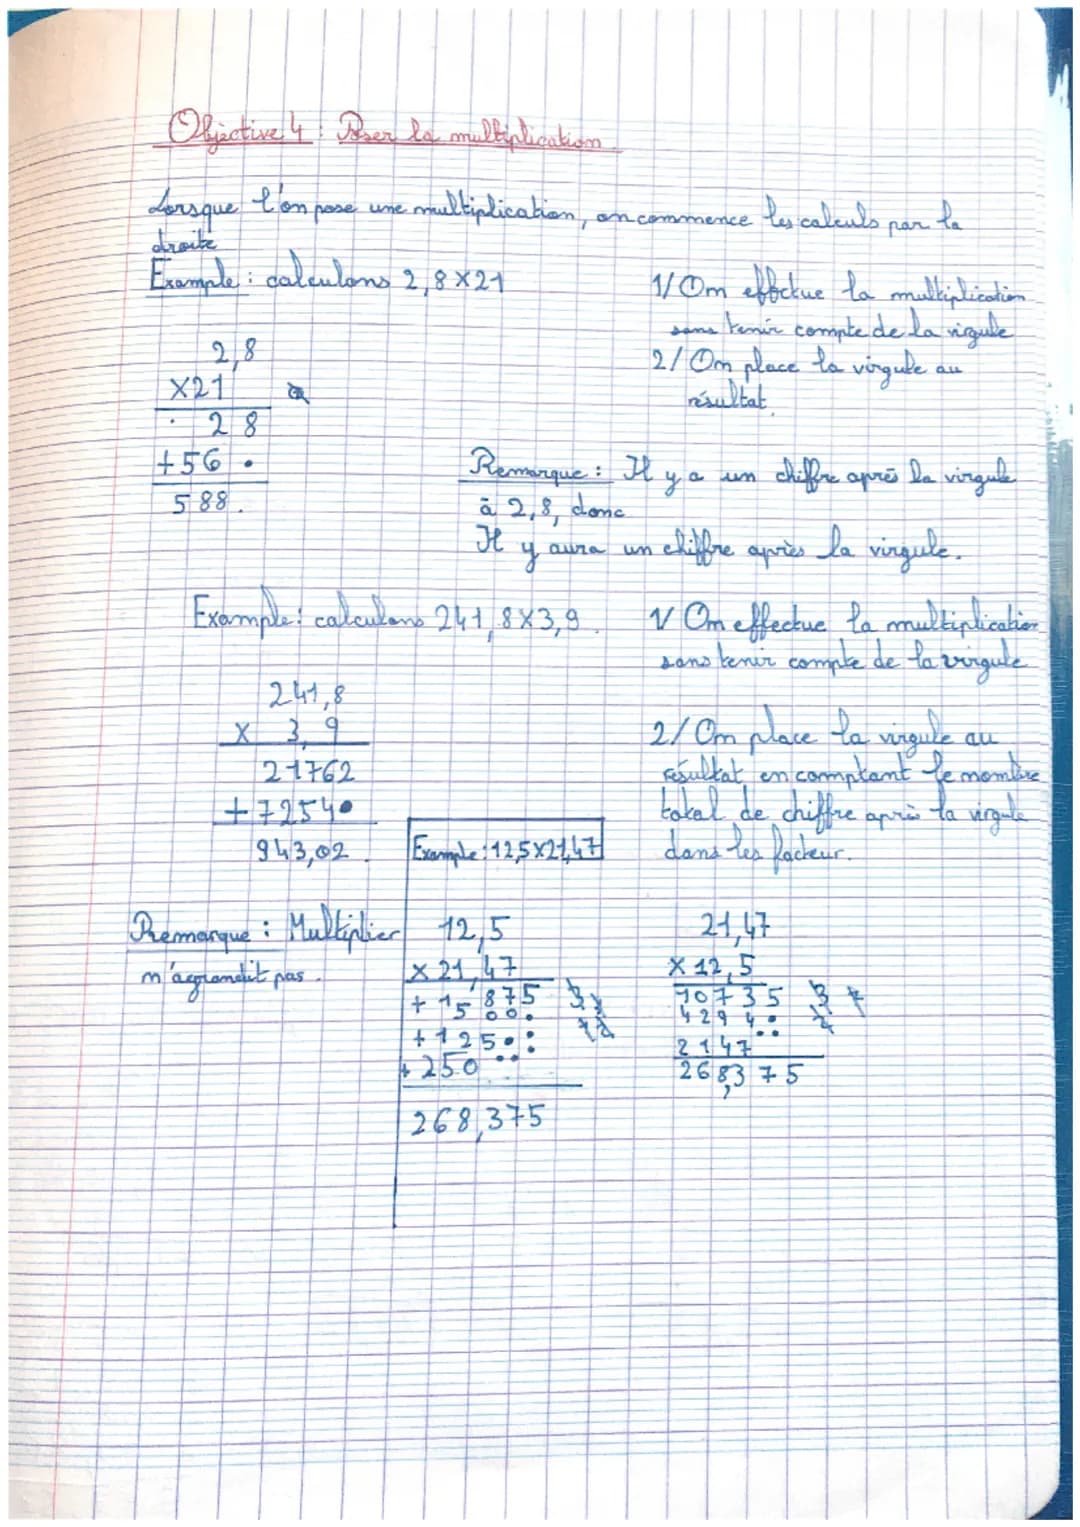 Objective 4 : Poser la multiplication.
Lorsque l'on pose une multiplication, on commence les calculs par la
droite
Example : calculons 2,8×21
2,8
×21
28
+56 •
588.
1/ On effectue la multiplication
sans tenir compte de la virgule
2/ On place la virgule au
résultat.
Remarque : Il y a un chiffre après la virgule
à 2,8, donc
Il y aura un chiffre après la virgule.
Example : calculons 241,8×3,9.
241,8
× 3,9
21762
+7254•
943,02.
1/ On effectue la multiplication
sans tenir compte de la virgule
2/ On place la virgule au
résultat en comptant le nombre
total de chiffre après la virgule
dans les facteur.
Remarque : Multiplier
n'agrandit pas.
Example : 12,5×21,47
12,5
× 21,47
+ 875
500•
+ 125••
+ 250•••
268,375
21,47
× 12,5
10735
4294•
2147••
268,375